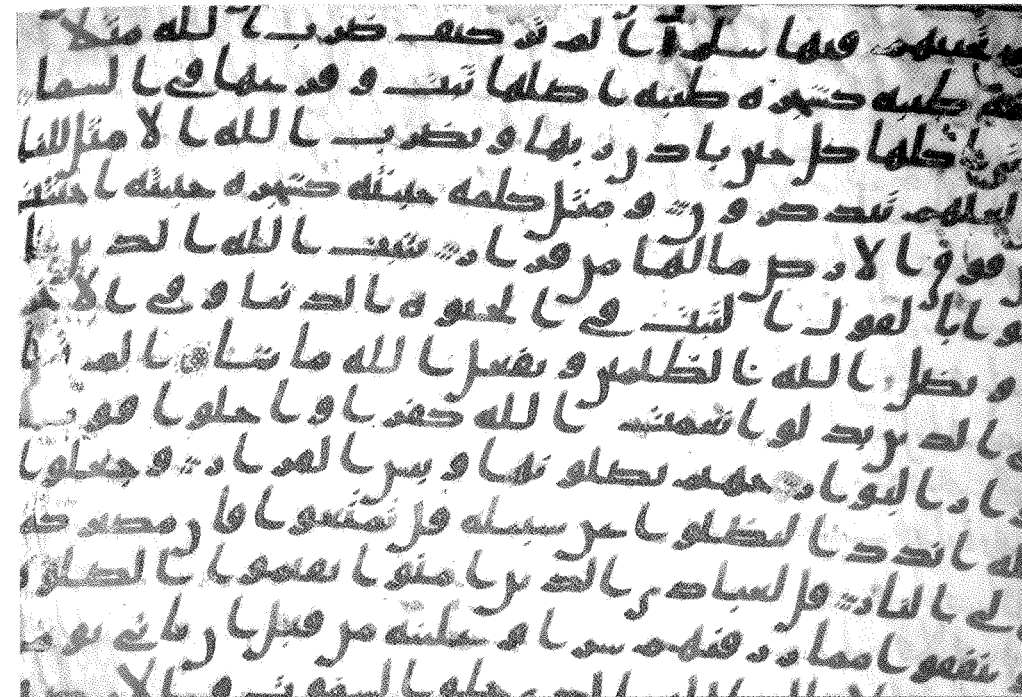 تحيتهم فيها سلم ا لم تر كيف ضرب ا لله مثلا
طيبه كشجره طيبه ا صلها ثبت و فرعها في ا لسما
تؤتي اكلها كل حين باذن ربها و يضرب ا لله ا لا مثل للنا
لعلهم يتذكرون و مثل كلمه خبيثه كشجره خبيثه ا جتثت
فوق ا لا رض ما لها من قرار يثبت ا لله ا لذين ا
منوا با لقول ا لثبت في ا لحيوه ا لدنيا و في ا لا خر
و يضل ا لله ا لظلمين و يفعل ا لله ما يشا ا لم تر ا
لى ا لذين بدلوا نعمت ا لله كفرا و ا حلوا قو
دار ا لبوار جهنم يصلونها و بئس ا لقرار و جعلوا
لله ا ندد ا ليضلوا عن سبيله قل تمتعوا فان مصيركم
ا لى ا لنار قل لعبادي ا لذين ا منوا يقيموا ا لصلوه
ينفقوا مما رزقنهم سرا و علنيه من قبل ا ن ياتي يوم
خلق ا لسموت و ا لا رض